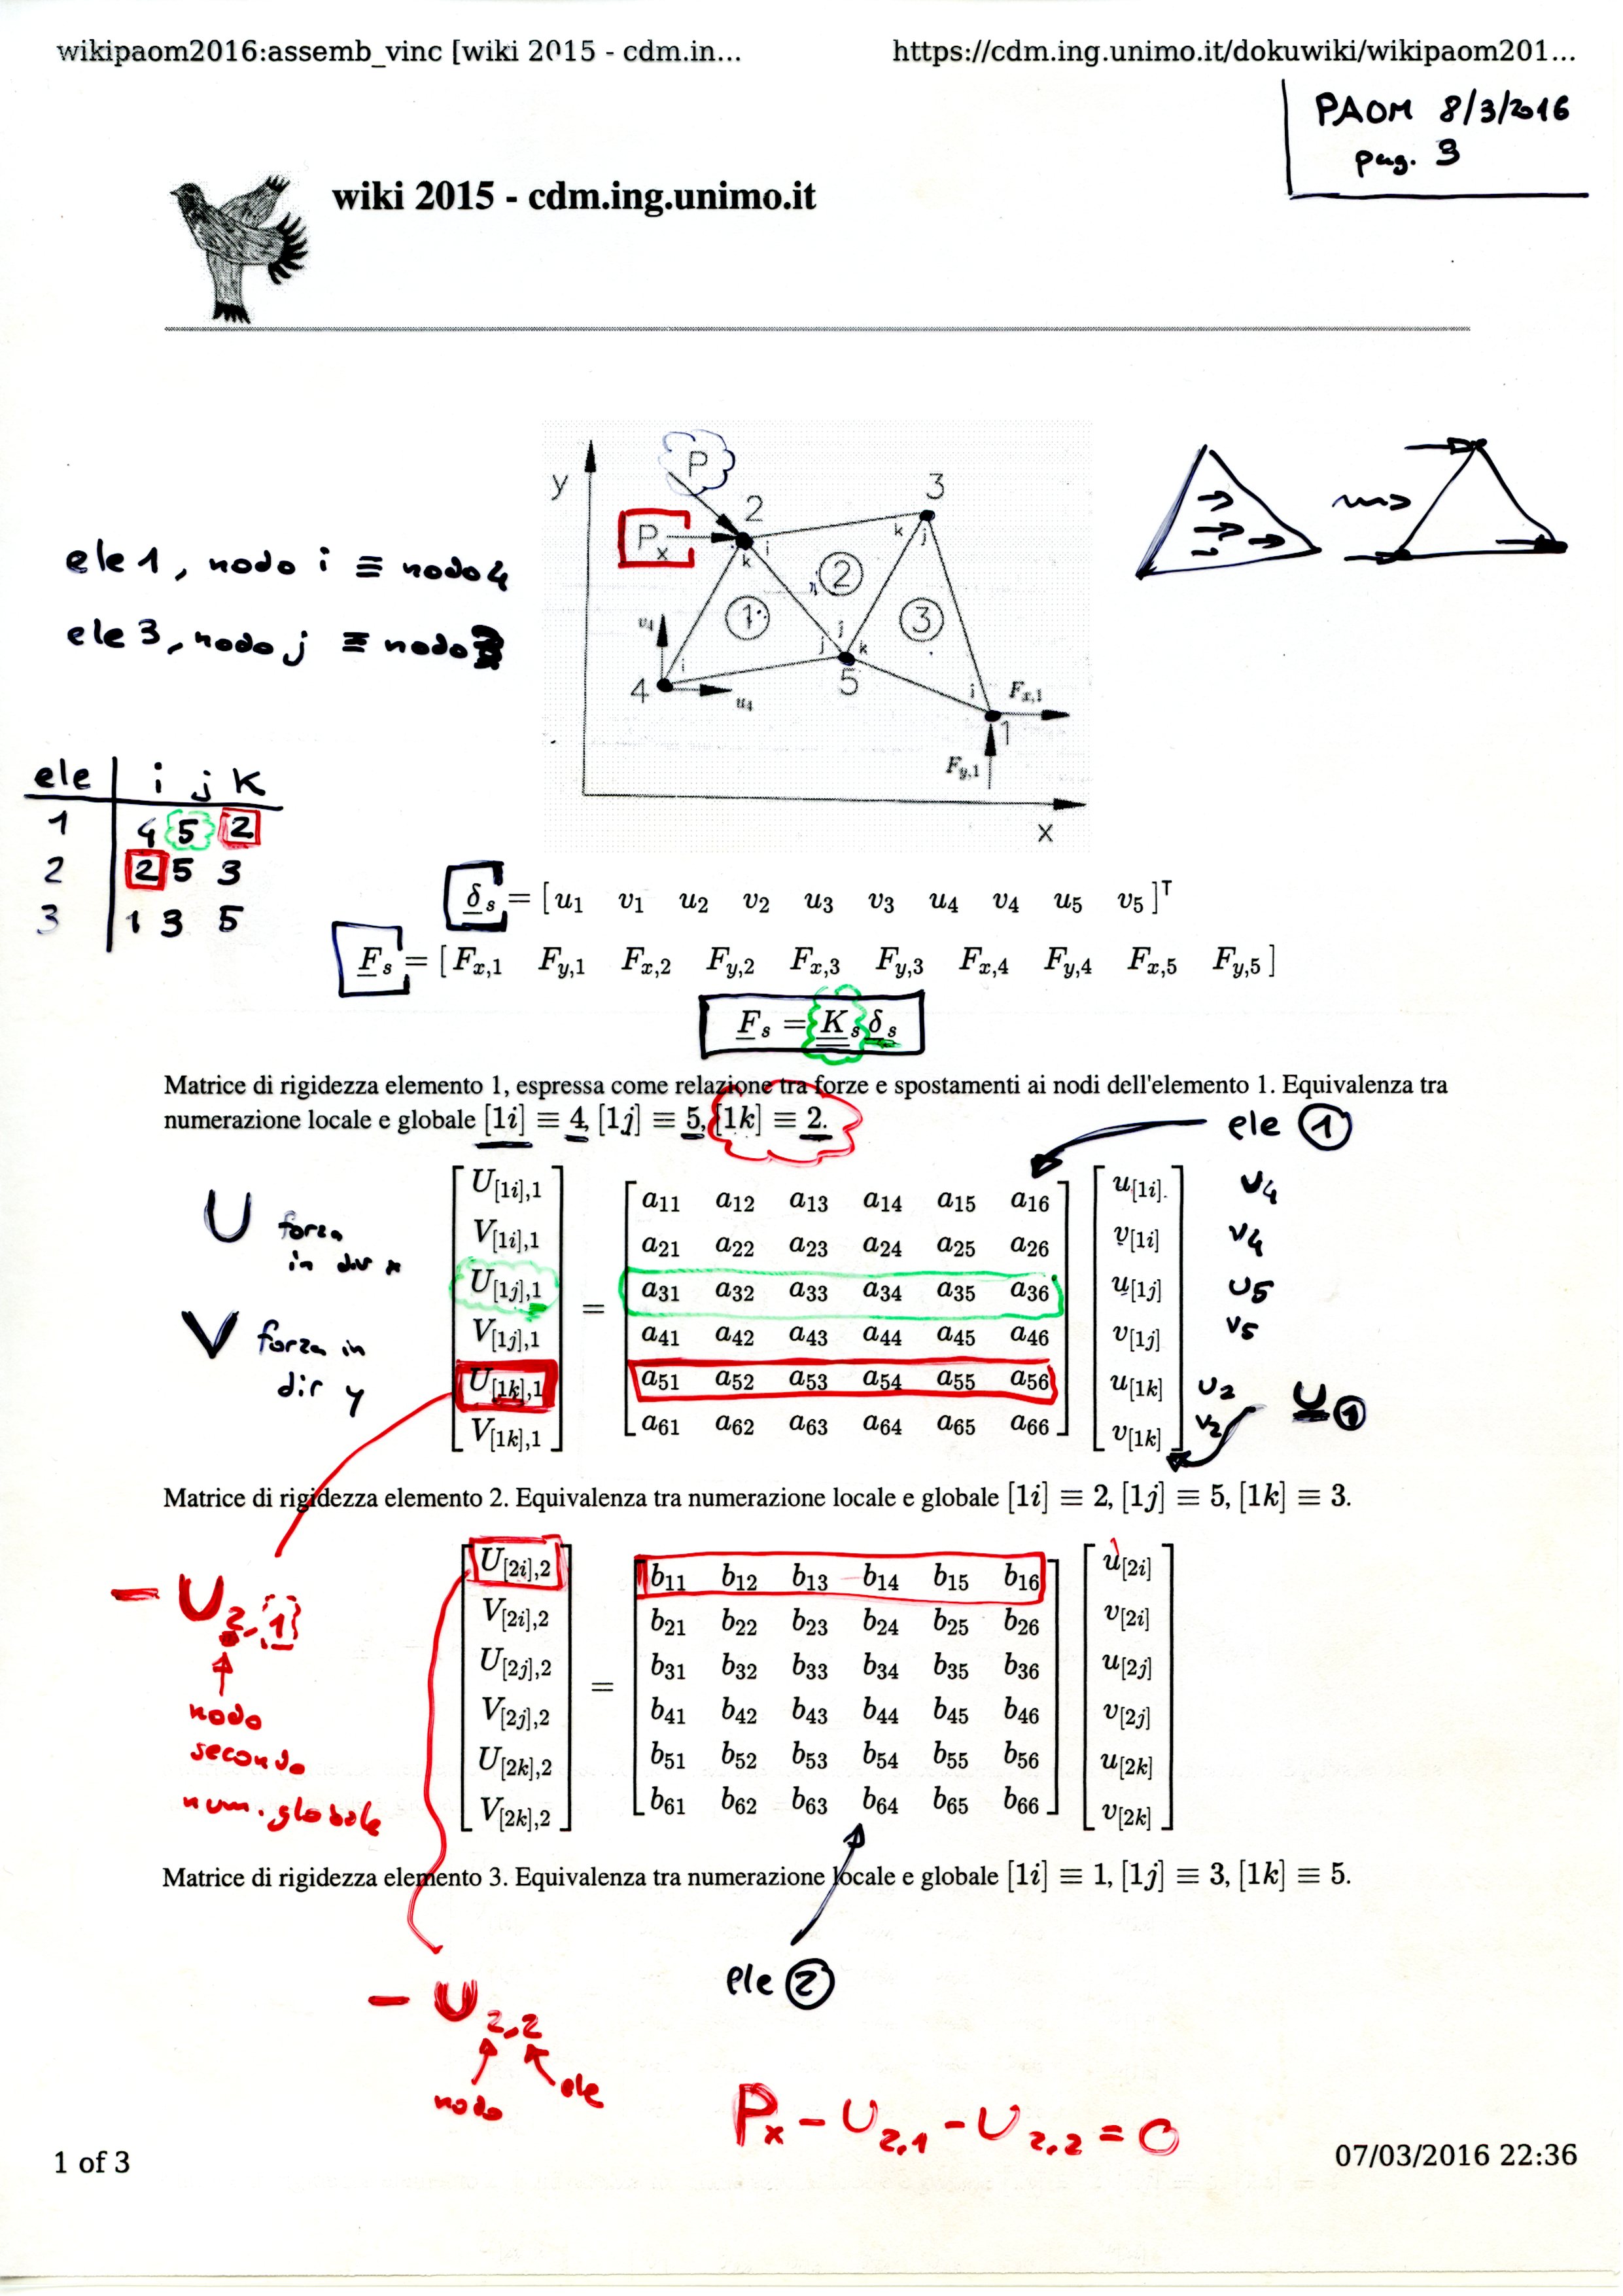 wikipaom2016:assemb_vinc [wiki 2015 - cdm.in... https://cdm.ing.unimo.it/dokuwiki/wikipaom201...
PAOM 8/3/2016
pag. 3
wiki 2015 - cdm.ing.unimo.it
ele 1, nodo i ≡ nodo 4
ele 3, nodo j ≡ nodo 3
y
P
P_x
2
3
k i k j
1 2 3
v_4
i j j k
4 u_4 5 i F_{x,1}
1
F_{y,1}
x
ele i j k
1 4 5 2
2 2 5 3
3 1 3 5
δ_s = [ u_1 v_1 u_2 v_2 u_3 v_3 u_4 v_4 u_5 v_5 ]^T
F_s = [ F_{x,1} F_{y,1} F_{x,2} F_{y,2} F_{x,3} F_{y,3} F_{x,4} F_{y,4} F_{x,5} F_{y,5} ]
F_s = K_s δ_s
Matrice di rigidezza elemento 1, espressa come relazione tra forze e spostamenti ai nodi dell'elemento 1. Equivalenza tra
numerazione locale e globale [1i] ≡ 4, [1j] ≡ 5, [1k] ≡ 2.
ele 1
U forza
in dir x
V forza in
dir y
U_{[1i],1} a_{11} a_{12} a_{13} a_{14} a_{15} a_{16} u_{[1i]} u_4
V_{[1i],1} a_{21} a_{22} a_{23} a_{24} a_{25} a_{26} v_{[1i]} v_4
U_{[1j],1} a_{31} a_{32} a_{33} a_{34} a_{35} a_{36} u_{[1j]} u_5
=
V_{[1j],1} a_{41} a_{42} a_{43} a_{44} a_{45} a_{46} v_{[1j]} v_5
U_{[1k],1} a_{51} a_{52} a_{53} a_{54} a_{55} a_{56} u_{[1k]} u_2 U_1
V_{[1k],1} a_{61} a_{62} a_{63} a_{64} a_{65} a_{66} v_{[1k]} v_2
Matrice di rigidezza elemento 2. Equivalenza tra numerazione locale e globale [1i] ≡ 2, [1j] ≡ 5, [1k] ≡ 3.
- U_{2,1}
nodo
secondo
num. globale
U_{[2i],2} b_{11} b_{12} b_{13} b_{14} b_{15} b_{16} u_{[2i]}
V_{[2i],2} b_{21} b_{22} b_{23} b_{24} b_{25} b_{26} v_{[2i]}
U_{[2j],2} b_{31} b_{32} b_{33} b_{34} b_{35} b_{36} u_{[2j]}
=
V_{[2j],2} b_{41} b_{42} b_{43} b_{44} b_{45} b_{46} v_{[2j]}
U_{[2k],2} b_{51} b_{52} b_{53} b_{54} b_{55} b_{56} u_{[2k]}
V_{[2k],2} b_{61} b_{62} b_{63} b_{64} b_{65} b_{66} v_{[2k]}
Matrice di rigidezza elemento 3. Equivalenza tra numerazione locale e globale [1i] ≡ 1, [1j] ≡ 3, [1k] ≡ 5.
ele 2
- U_{2,2}
nodo ele
P_x - U_{2,1} - U_{2,2} = 0
1 of 3 07/03/2016 22:36